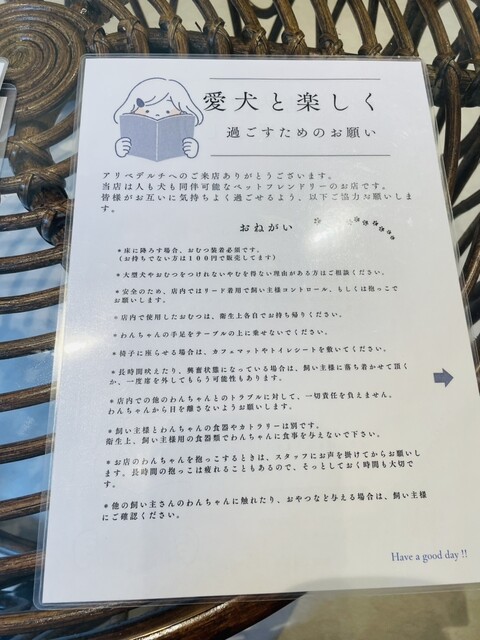 愛犬と楽しく
過ごすためのお願い
アリベデルチへのご来店ありがとうございます。
当店は人も犬も同伴可能なペットフレンドリーのお店です。
皆様がお互いに気持ちよく過ごせるよう、以下ご協力お願いしま
す。
おねがい
*床に降ろす場合、おむつ装着必須です。
(お持ちでない方は100円で販売してます)
*大型犬やおむつをつけれないやむを得ない理由がある方はご相談ください。
*安全のため、店内ではリード着用で飼い主様コントロール、もしくは抱っこで
お願いします。
*店内で使用したおむつは、衛生上各自でお持ち帰りください。
*わんちゃんの手足をテーブルの上に乗せないでください。
*椅子に座らせる場合は、カフェマットやトイレシートを敷いてください。
*長時間吠えたり、興奮状態になっている場合は、飼い主様に落ち着かせて頂く
か、一度席を外してもらう可能性もあります。
*店内での他のわんちゃんとのトラブルに対して、一切責任を負えません。
わんちゃんから目を離さないようお願いします。
*飼い主様とわんちゃんの食器やカトラリーは別です。
衛生上、飼い主様用の食器類でわんちゃんに食事を与えないで下さい。
*お店のわんちゃんを抱っこするときは、スタッフにお声を掛けてからお願いし
ます。長時間の抱っこは疲れることもあるので、そっとしておく時間も大切で
す。
*他の飼い主さんのわんちゃんに触れたり、おやつなど与える場合は、飼い主様
にご確認ください。
Have a good day !!